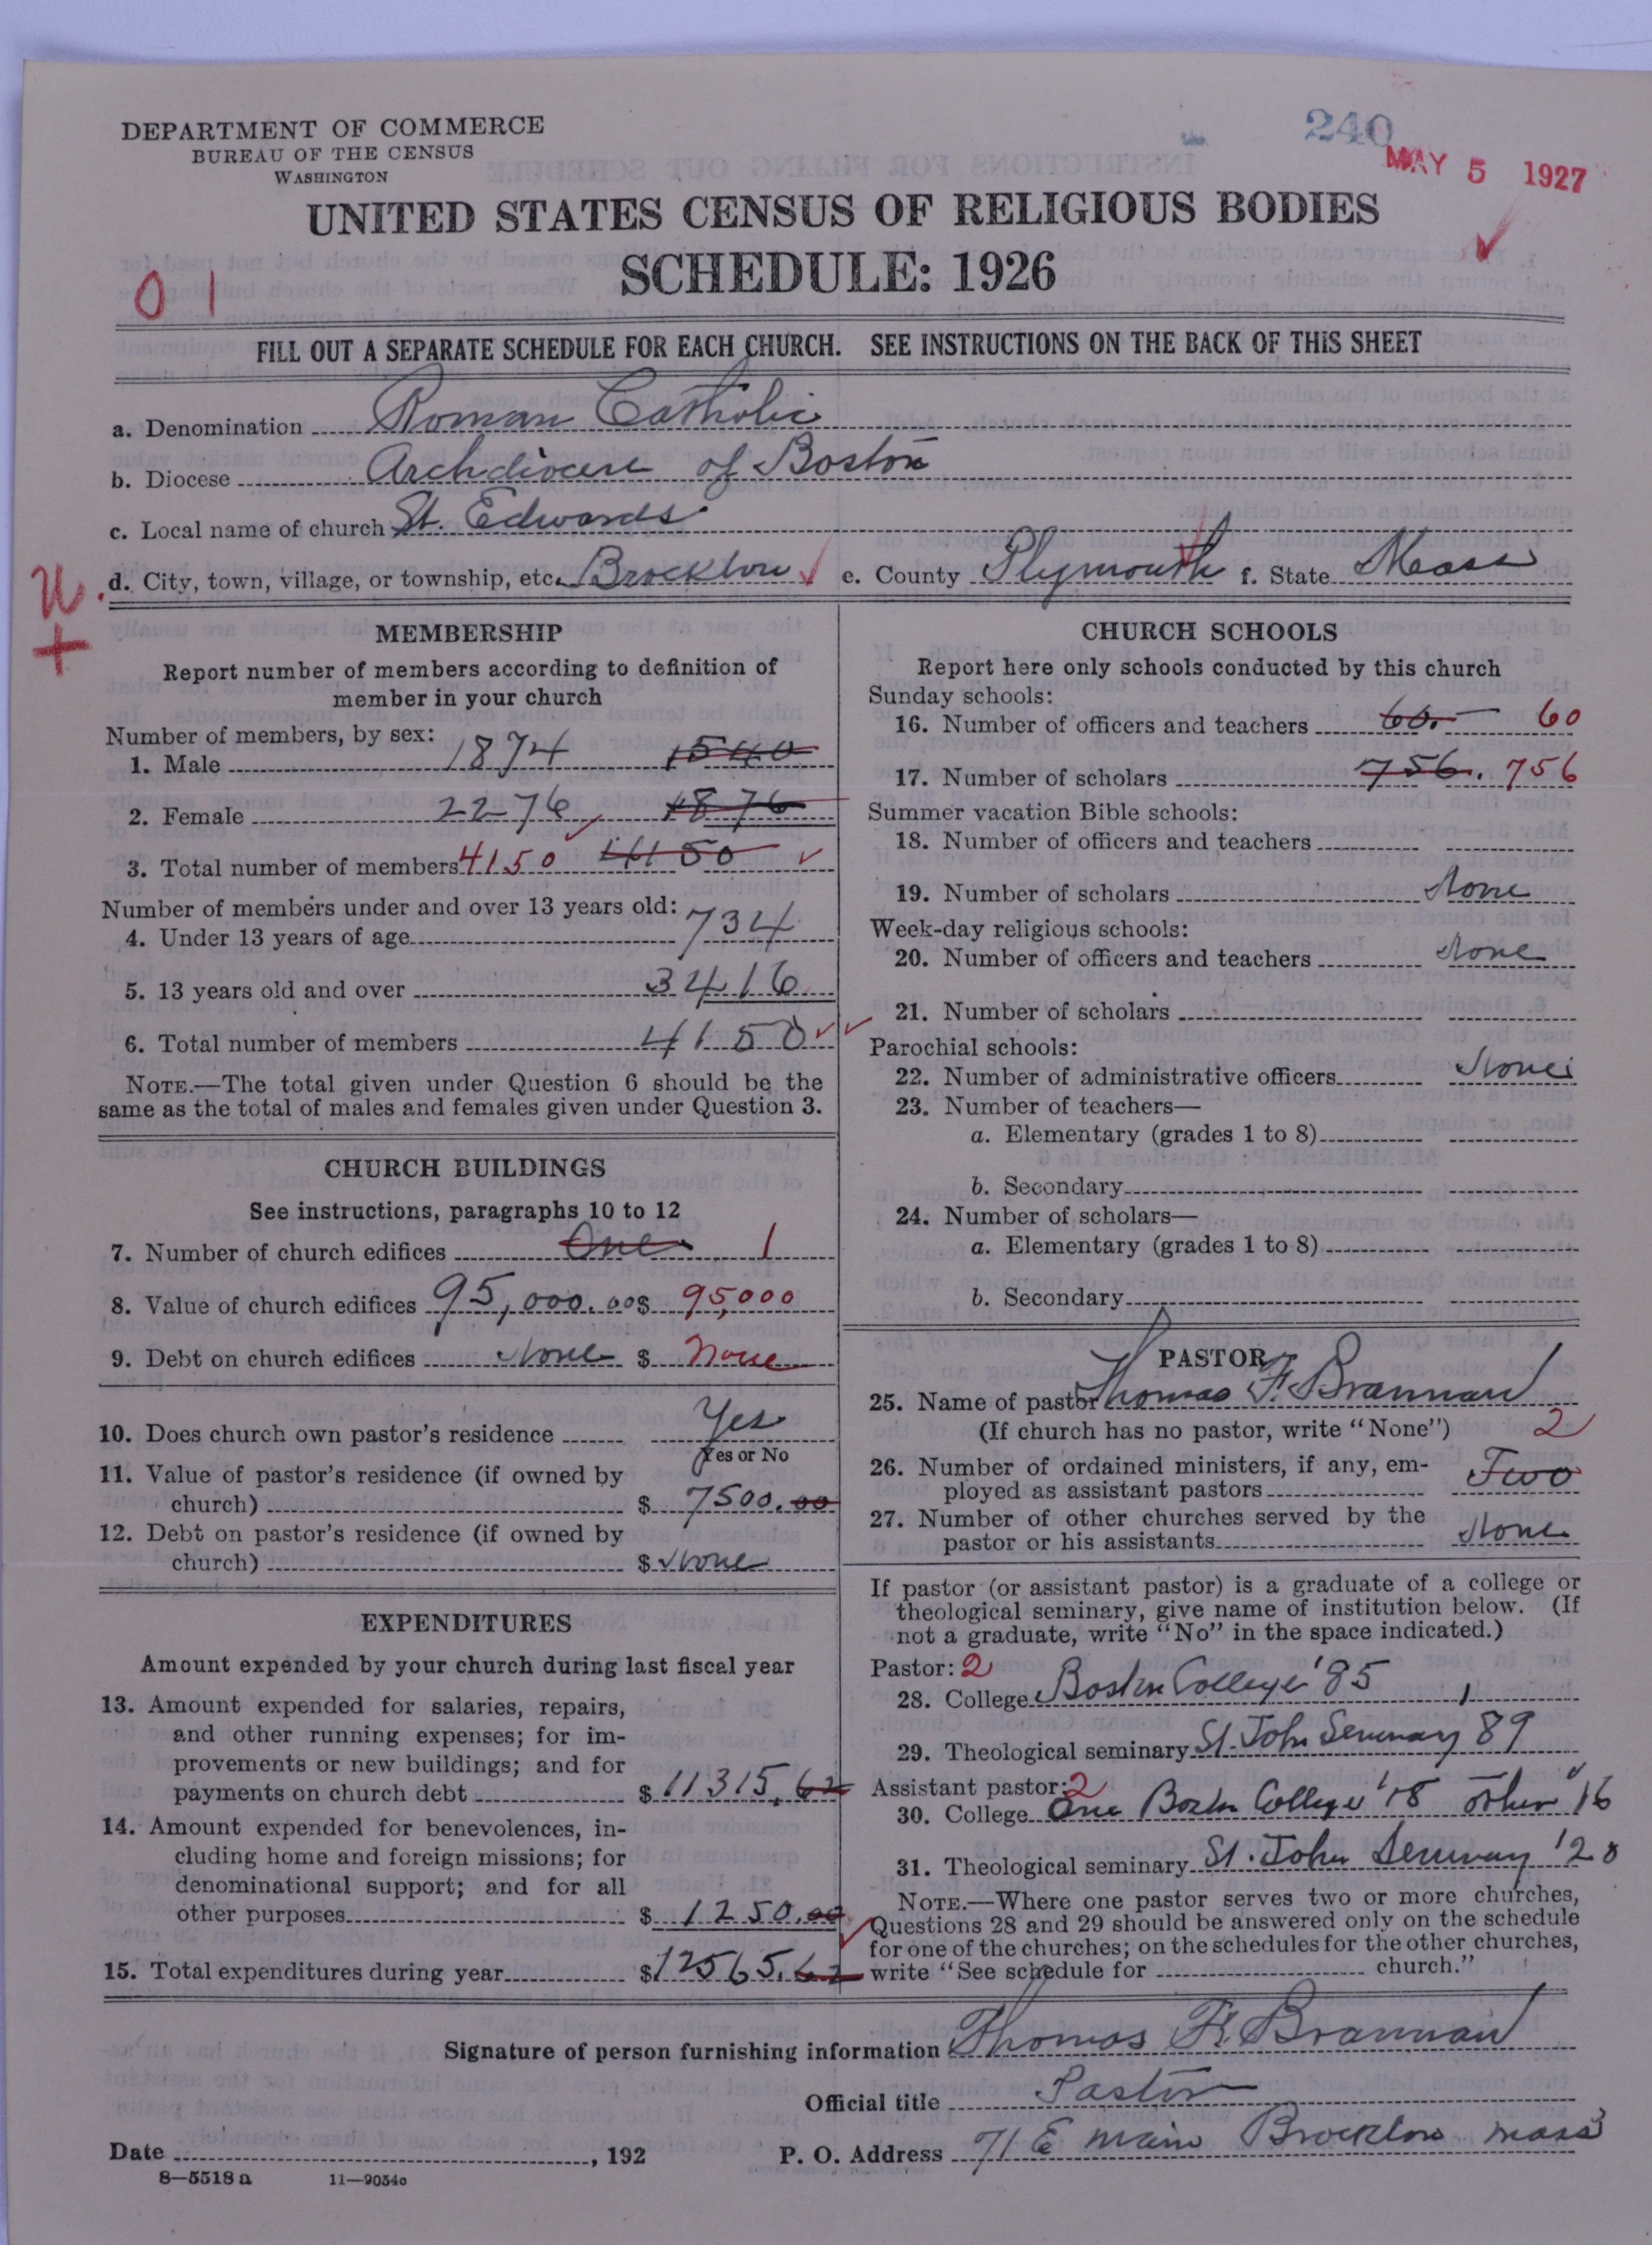 DEPARTMENT OF COMMERCE
BUREAU OF THE CENSUS
WASHINGTON
240
MAY 5 1927
UNITED STATES CENSUS OF RELIGIOUS BODIES
SCHEDULE: 1926
0 1
FILL OUT A SEPARATE SCHEDULE FOR EACH CHURCH. SEE INSTRUCTIONS ON THE BACK OF THIS SHEET
a. Denomination Roman Catholic
b. Diocese Archdiocese of Boston
c. Local name of church St. Edwards
d. City, town, village, or township, etc. Brockton e. County Plymouth f. State Mass
MEMBERSHIP
Report number of members according to definition of
member in your church
Number of members, by sex:
1. Male 1874 1540
2. Female 2276 1876
3. Total number of members 4150 4150
Number of members under and over 13 years old:
4. Under 13 years of age 734
5. 13 years old and over 3416
6. Total number of members 4150
NOTE.—The total given under Question 6 should be the
same as the total of males and females given under Question 3.
CHURCH BUILDINGS
See instructions, paragraphs 10 to 12
7. Number of church edifices One 1
8. Value of church edifices 95,000.00 $ 95,000
9. Debt on church edifices None $ None
10. Does church own pastor's residence Yes
Yes or No
11. Value of pastor's residence (if owned by
church) $ 7500.00
12. Debt on pastor's residence (if owned by
church) $ None
EXPENDITURES
Amount expended by your church during last fiscal year
13. Amount expended for salaries, repairs,
and other running expenses; for im-
provements or new buildings; and for
payments on church debt $ 11315.62
14. Amount expended for benevolences, in-
cluding home and foreign missions; for
denominational support; and for all
other purposes $ 1250.00
15. Total expenditures during year $ 12565.62
CHURCH SCHOOLS
Report here only schools conducted by this church
Sunday schools:
16. Number of officers and teachers 60. 60
17. Number of scholars 756. 756
Summer vacation Bible schools:
18. Number of officers and teachers
19. Number of scholars None
Week-day religious schools:
20. Number of officers and teachers None
21. Number of scholars
Parochial schools:
22. Number of administrative officers None
23. Number of teachers—
a. Elementary (grades 1 to 8)
b. Secondary
24. Number of scholars—
a. Elementary (grades 1 to 8)
b. Secondary
PASTOR
25. Name of pastor Thomas F. Brannan
(If church has no pastor, write "None") 2
26. Number of ordained ministers, if any, em-
ployed as assistant pastors Two
27. Number of other churches served by the
pastor or his assistants None
If pastor (or assistant pastor) is a graduate of a college or
theological seminary, give name of institution below. (If
not a graduate, write "No" in the space indicated.)
Pastor: 2
28. College Boston College '85
29. Theological seminary St. John Seminary 89
Assistant pastor: 2
30. College One Boston College '18 other '16
31. Theological seminary St. John Seminary '20
NOTE.—Where one pastor serves two or more churches,
Questions 28 and 29 should be answered only on the schedule
for one of the churches; on the schedules for the other churches,
write "See schedule for church."
Signature of person furnishing information Thomas F. Brannan
Official title Pastor
Date , 192 P. O. Address 71 E main Brockton mass
8—5518 a 11—9054c